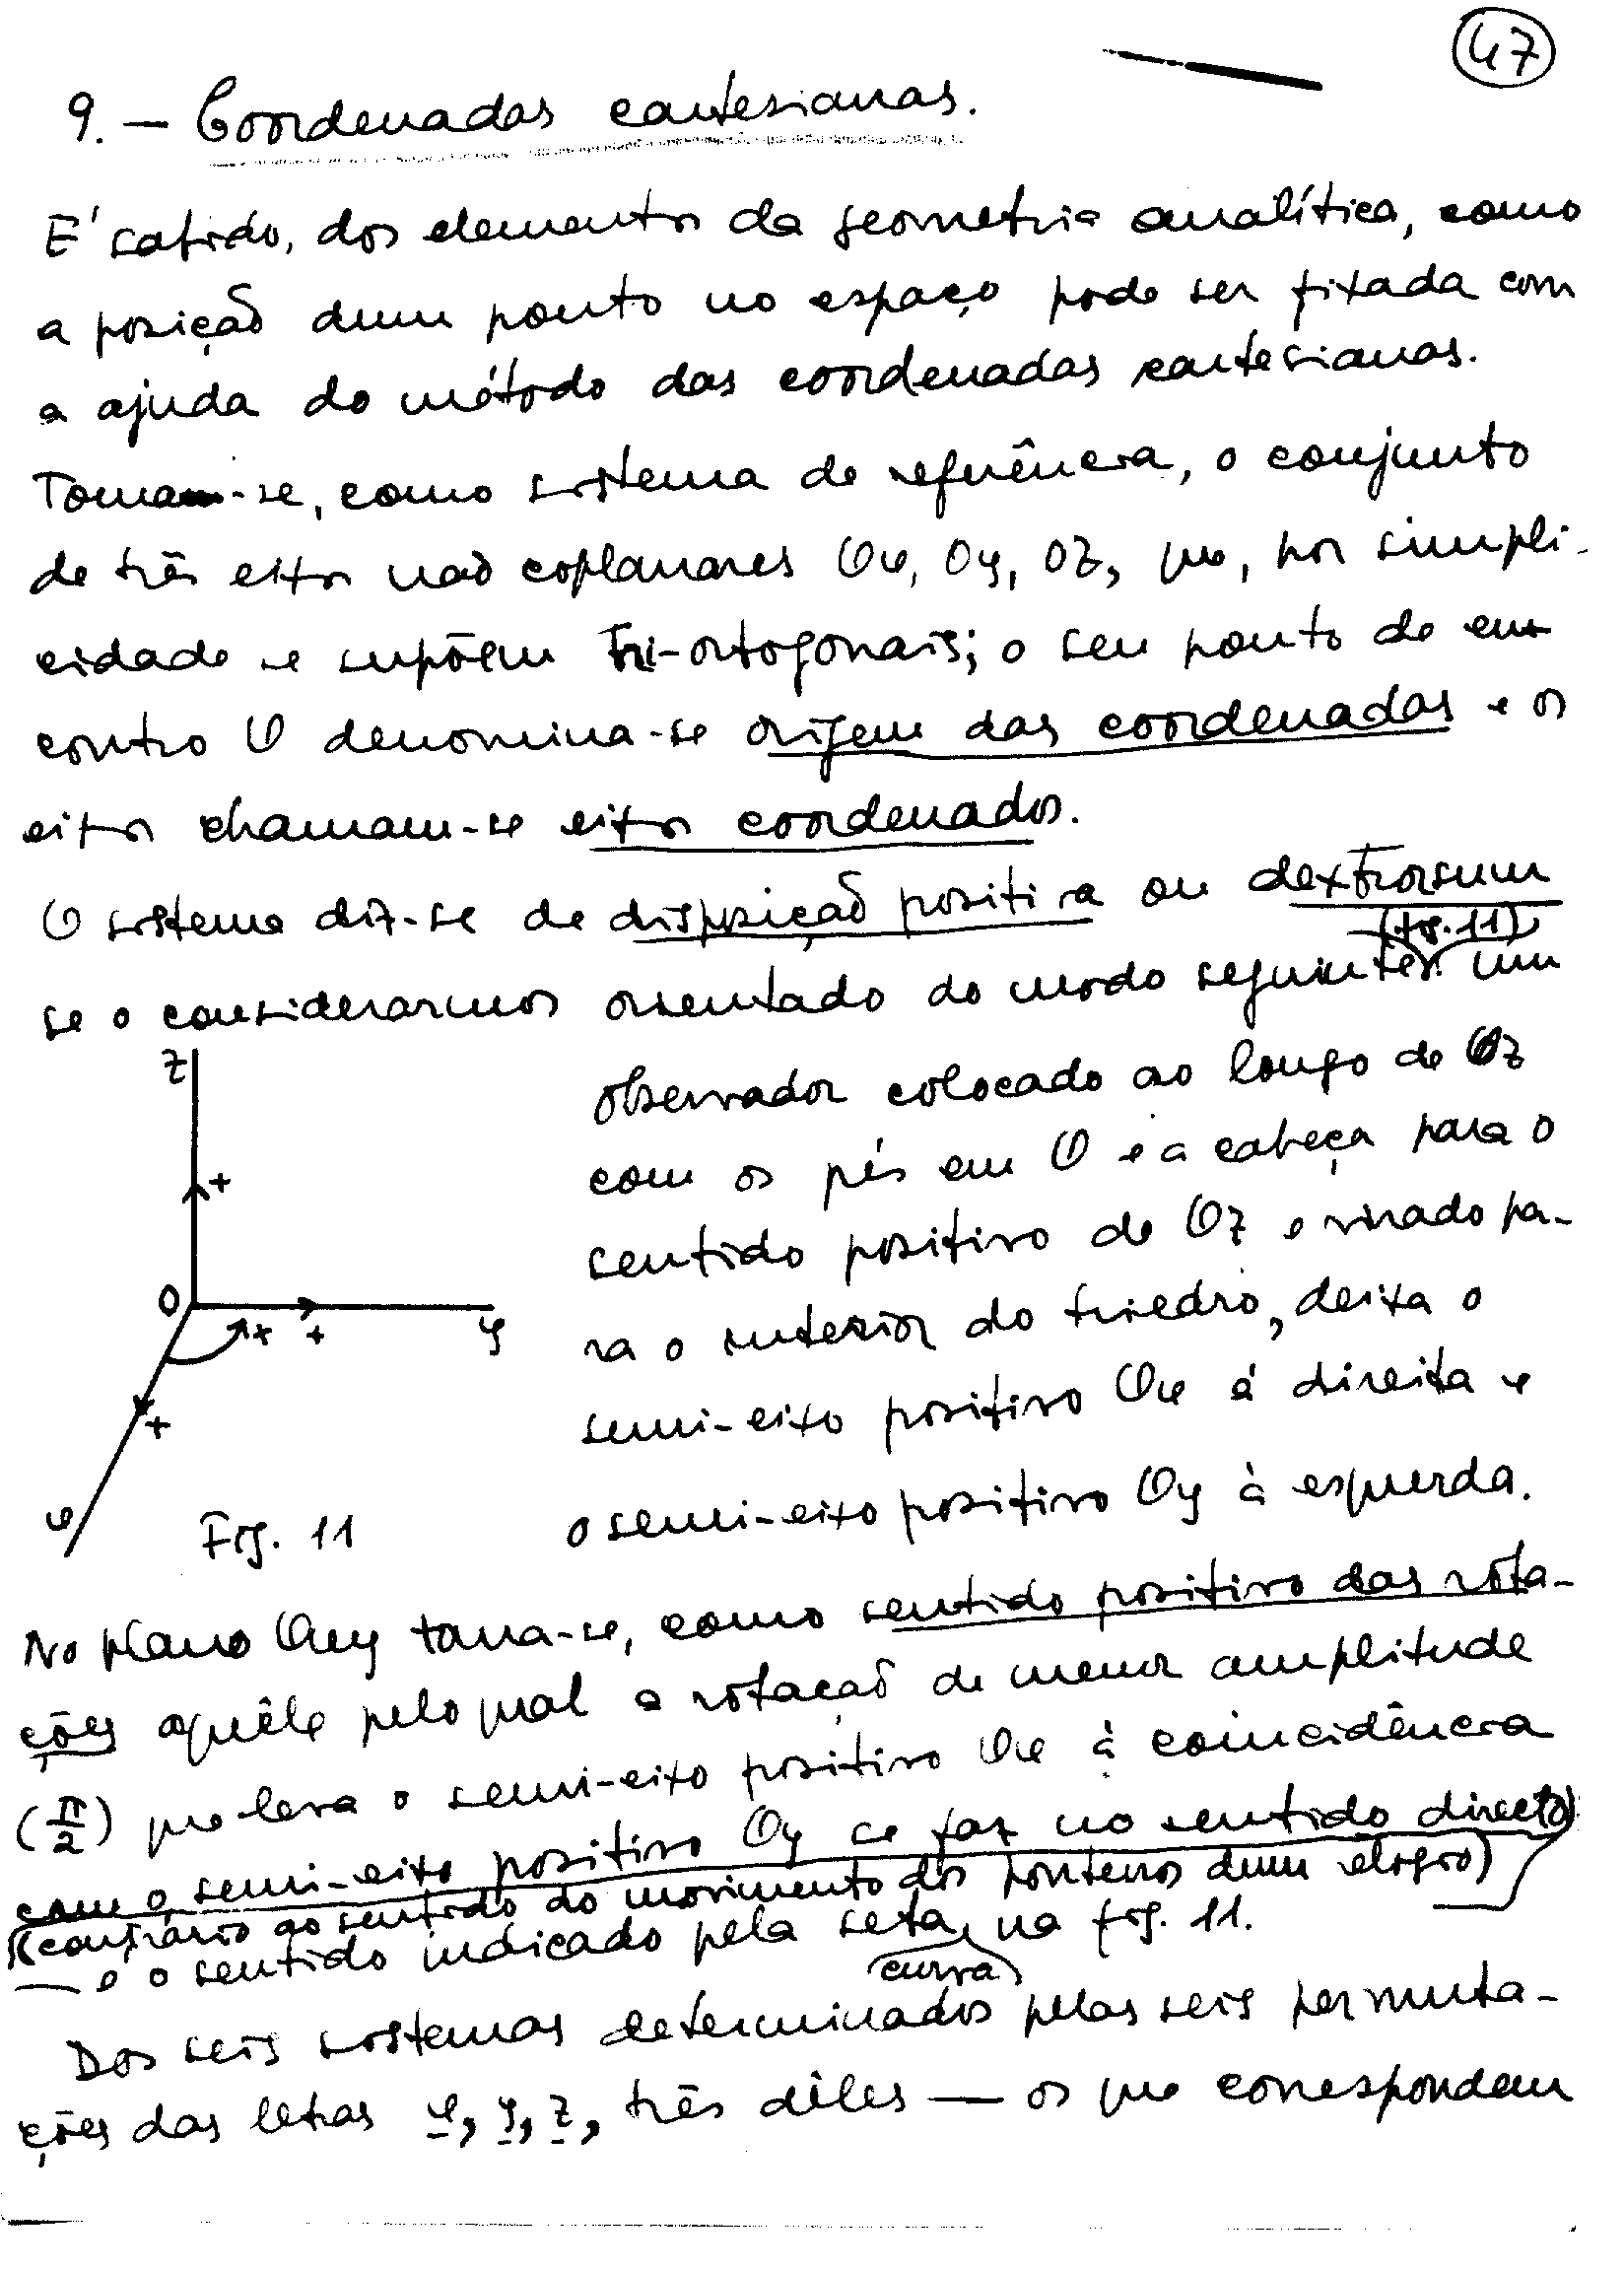 47
9. — Coordenadas cartesianas.
E' sabido, dos elementos da geometria analítica, como
a posição dum ponto no espaço pode ser fixada com
a ajuda do método das coordenadas cartesianas.
Toma-se, como sistema de referência, o conjunto
de três eixos não coplanares Ox, Oy, Oz, que, por simpli-
cidade se supõem tri-ortogonais; o seu ponto de en-
contro O denomina-se origem das coordenadas e os
eixos chamam-se eixos coordenados.
O sistema diz-se de disposição positiva ou dextrorsum
(fig. 11)
se o considerarmos orientado do modo seguinte: um
observador colocado ao longo de Oz
com os pés em O e a cabeça para o
sentido positivo de Oz e virado pa-
ra o interior do triedro, deixa o
semi-eixo positivo Ox à direita e
o semi-eixo positivo Oy à esquerda.
z
+
O
+
+
y
+
x
Fig. 11
No plano Oxy toma-se, como sentido positivo das rota-
ções aquêle pelo qual a rotação de menor amplitude
(π/2) que leva o semi-eixo positivo Ox à coincidência
com o semi-eixo positivo Oy se faz no sentido directo
(contrário ao sentido do movimento dos ponteiros dum relógio)
— e o sentido indicado pela seta na fig. 11.
curva
Dos seis sistemas determinados pelas seis permuta-
ções das letras x, y, z, três dêles — os que correspondem